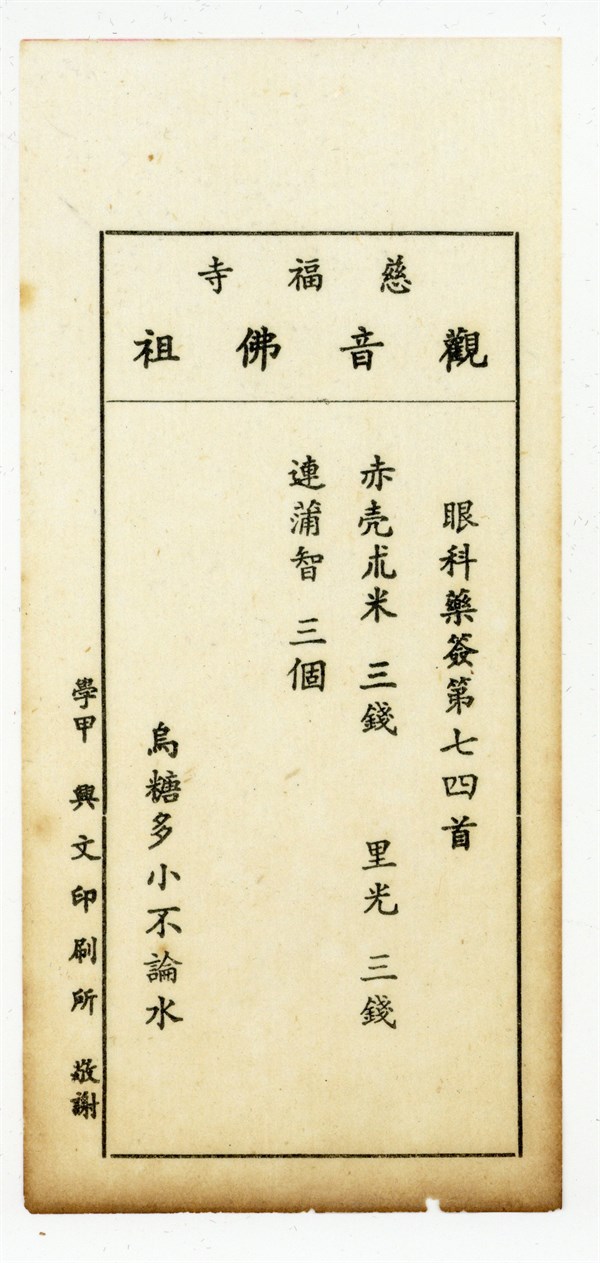 慈福寺
觀音佛祖
眼科藥簽第七四首
赤壳朮米 三錢 里光 三錢
連蒲智 三個
烏糖多小不論水
學甲 興文印刷所 敬謝